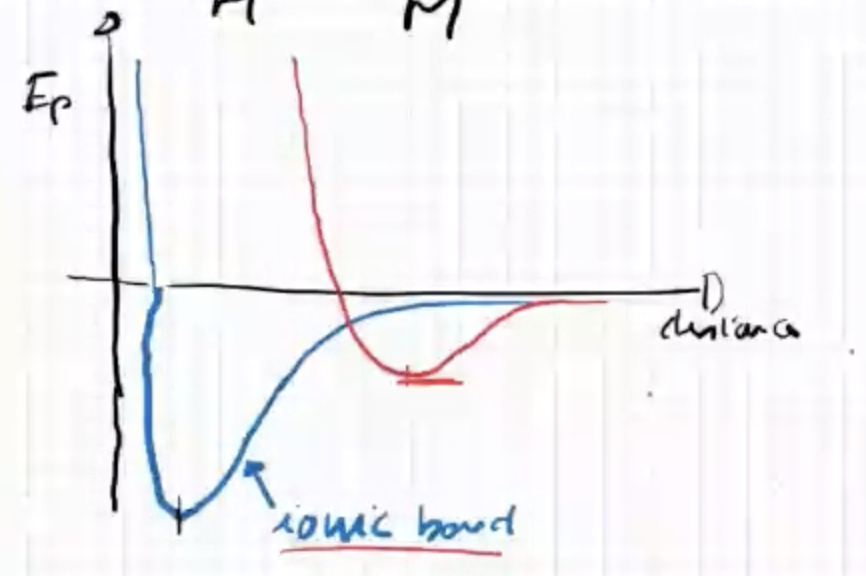 M
Ep
distance
ionic bond